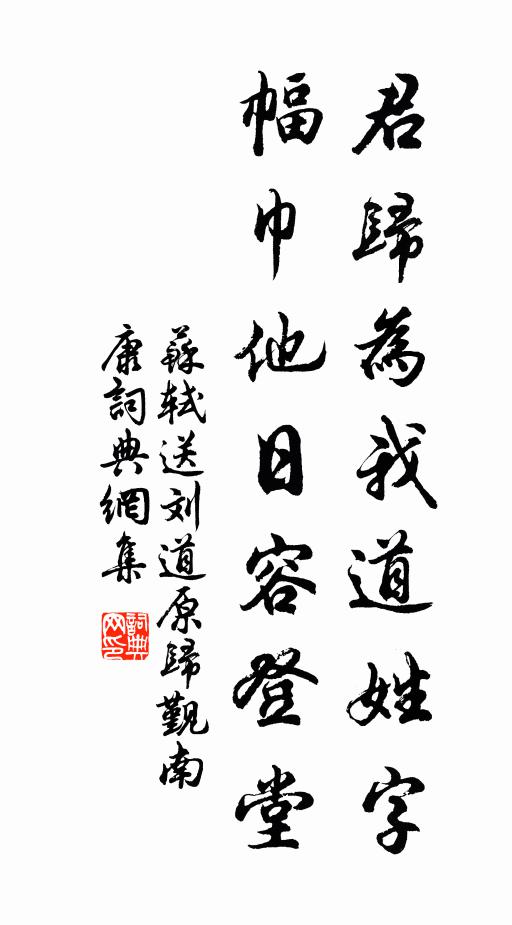 君歸為我道姓字
幅巾他日容登堂
蘇軾送刘道原歸覲南
康詞典網集
詞典
网印